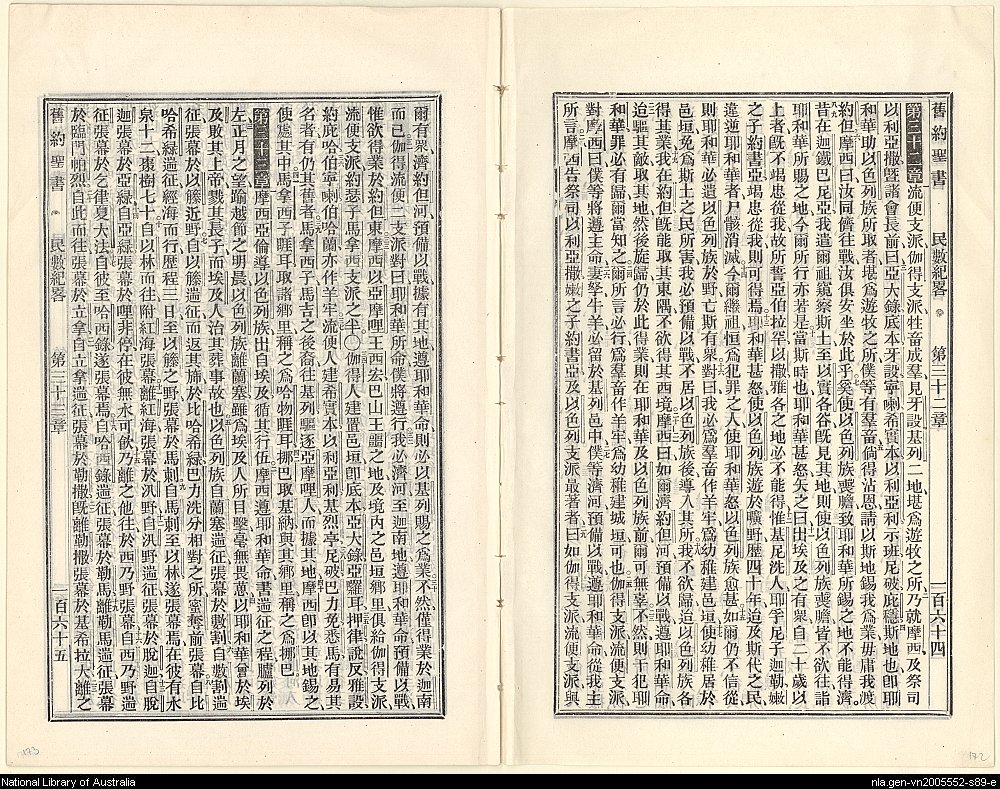 舊約聖書 民數紀畧 第三十二章 一百六十四
第三十二章流便支派伽得支派牲畜成羣見牙設基列二地堪爲遊牧之所乃就摩西及祭司
以利亞撒暨諸會長前曰亞大錄底本牙設寧喇希實本以利亞利示班尼破庇穩斯地也卽耶
和華助以色列族所取者堪爲遊牧之所僕等有羣畜倘得沾恩請以斯地錫我爲業毋庸我渡
約但摩西曰汝同儕往戰汝俱安坐於此乎奚使以色列族喪膽致耶和華所錫之地不能得濟
昔在迦鐵巴尼亞我遣爾祖窺察斯土至以實各谷旣見其地則使以色列族喪膽皆不欲往詣
耶和華所賜之地今爾所行亦若是當斯時也耶和華甚怒矢之曰出埃及之有衆自二十歲以
上者旣不竭忠從我故所誓亞伯拉罕以撒雅各之地必不能得惟基尼洗人耶孚尼子迦勒嫩
之子約書亞竭忠從我則可得焉耶和華甚怒使以色列族遊於曠野歷四十年迨及斯代之民
違逆耶和華者尸骸消滅今爾繼祖恒爲犯罪之人使耶和華怒以色列族愈甚如爾仍不信從
則耶和華必遺以色列族於野亡斯有衆對曰我必爲羣畜作羊牢爲幼稚建邑垣使幼稚居於
邑垣免爲斯土之民所害我必預備以戰不居以色列族後導入其所我不欲歸迨以色列族各
得其業我在約但旣能取其東隅不欲得其西境摩西曰如爾濟約但河預備以戰遵耶和華命
迨驅其敵取其地然後旋歸仍於此得業則在耶和華及以色列族前爾可無辜不然則干犯耶
和華罪必有歸爾當知之爾所言必行爲羣畜作羊牢爲幼稚建城垣可也伽得支派流便支派
對摩西曰僕等將遵主命妻孥牛羊必留於基列邑中僕等濟河預備以戰遵耶和華命從我主
所言摩西告祭司以利亞撒嫩之子約書亞及以色列支派最著者曰如伽得支派流便支派與
爾有衆濟約但河預備以戰據有其地遵耶和華命則必以基列賜之爲業不然僅得業於迦南
而已伽得流便二支派對曰耶和華所命僕將遵行我必濟河至迦南地遵耶和華命預備以戰
惟欲得業於約但東摩西以亞摩哩王西宏巴山王噩之地及境內之邑垣鄉里俱給伽得支派
流便支派約瑟子馬拿西支派之半〇伽得人建置邑垣卽底本亞大錄亞囉耳押律說反雅設
約庇哈伯寧喇伯哈蘭亦作羊牢流便人建希實本以利亞利基烈亭尼破巴力免悉馬有易其
名者有仍其舊者馬拿西子馬吉之後裔往基列驅逐亞摩哩人而據其地摩西卽以其地錫之
使處其中馬拿西子睚耳取諸鄉里稱之爲哈物睚耳挪巴取基納與其鄉里稱之爲挪巴
第三十三章摩西亞倫導以色列族出自埃及循其行伍摩西遵耶和華命書遄征之程臚列於
左正月之望踰越節之明晨以色列族離蘭塞雖爲埃及人所目擊毫無畏葸以耶和華曾於埃
及敗其上帝戮其長子而埃及人治其葬事故也以色列族自蘭塞遄征張幕於數割自數割遄
征張幕於以籐近野自以籐遄征而返其旆於比哈希綠巴力洗分相對之所密奪前張幕自比
哈希綠遄征經海而行歷程三日至以籐之野張幕於馬剌自馬剌至以林遂張幕焉在彼有水
泉十二棗樹七十自以林而往附紅海張幕離紅海張幕於汛野自汛野遄征張幕於脫迦自脫
迦張幕於亞綠自亞綠張幕於哩非停在彼無水可飲乃離之他往於西乃野張幕自西乃野遄
征張幕於乞律夏大法自彼至哈西錄遂張幕焉自哈西錄遄征張幕於勒馬離勒馬遄征張幕
於臨門帕烈自此而往張幕於立拿自立拿遄征張幕於勒撒旣離勒撒張幕於基希拉大離之
舊約聖書 民數紀畧 第三十三章 一百六十五
173
172
National Library of Australia
nla.gen-vn2005552-s89-e